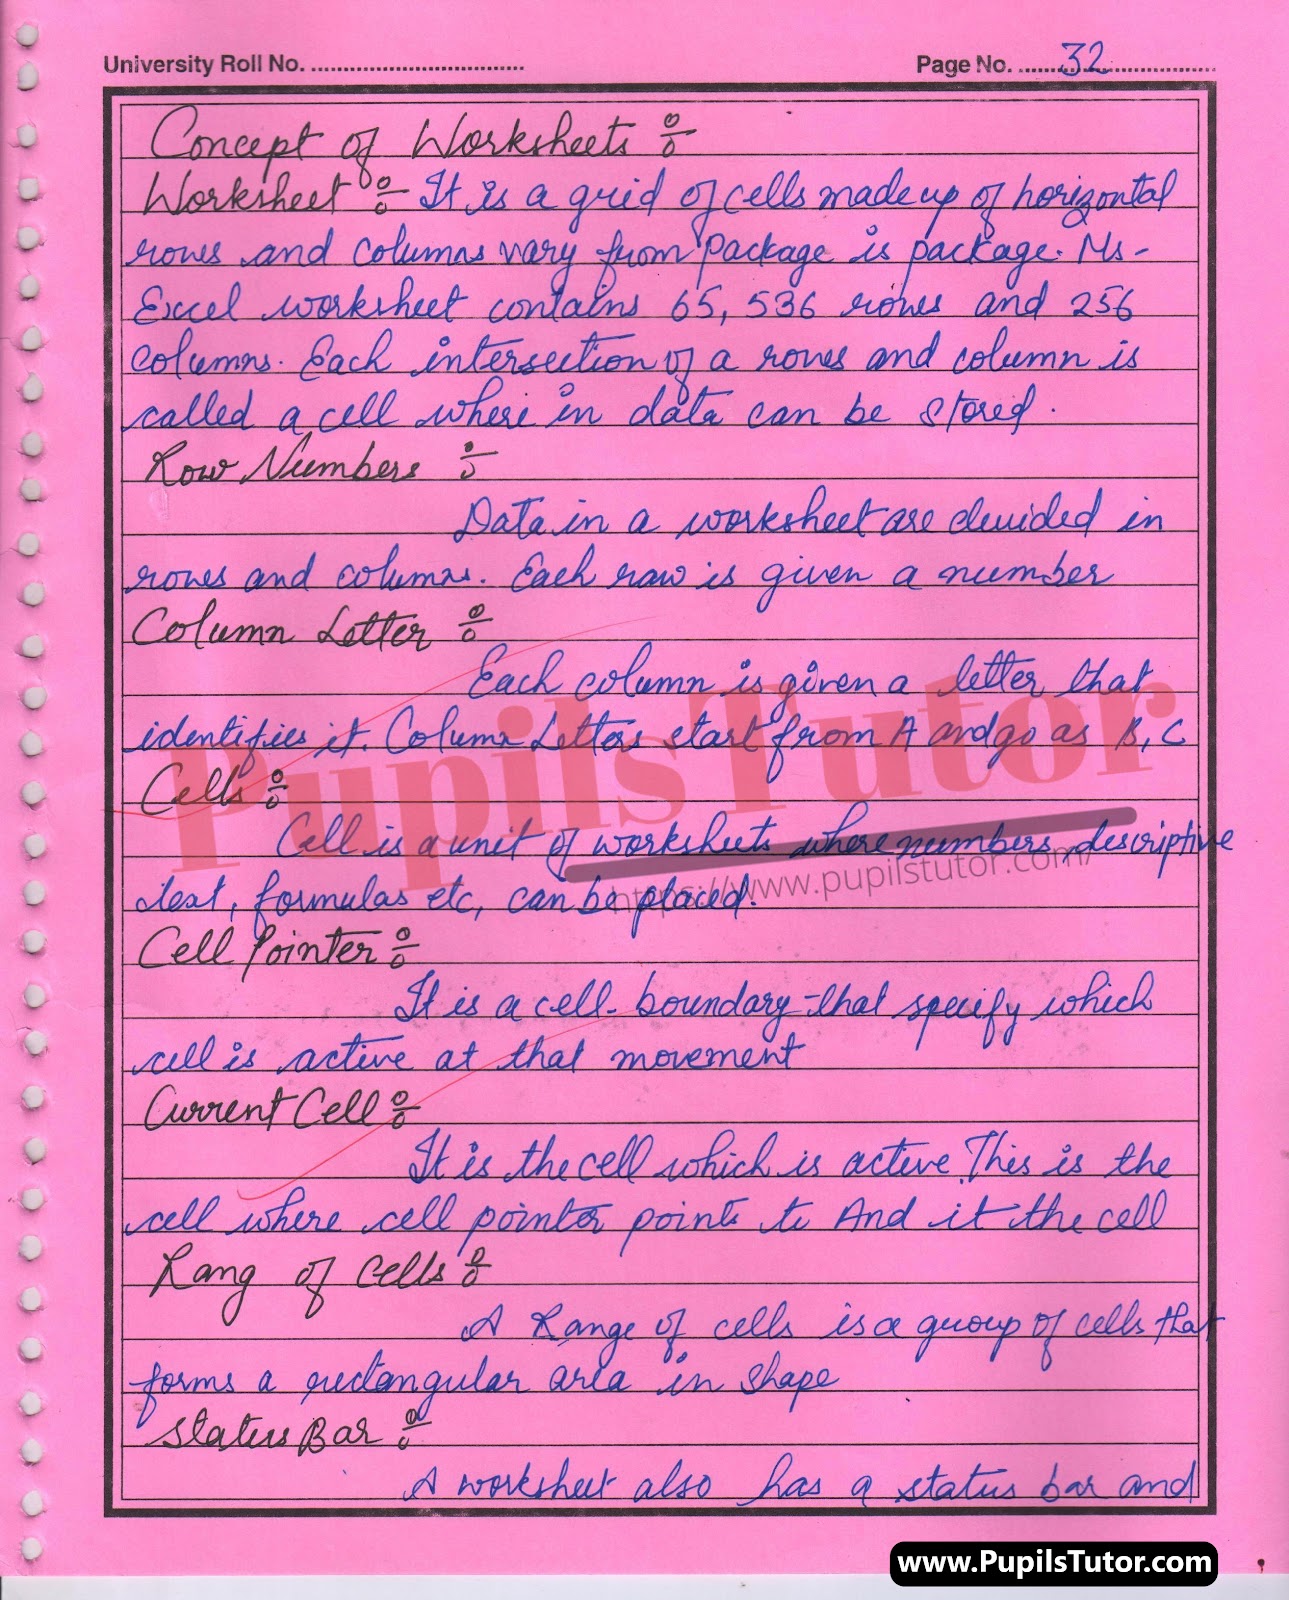 University Roll No. ................................. Page No. ......32.................
Concept of Worksheets ÷
Worksheet ÷ It is a grid of cells made up of horizontal
rows and columns vary from package is package. Ms-
Excel worksheet contains 65,536 rows and 256
columns. Each intersection of a rows and column is
called a cell where in data can be stored.
Row Numbers ÷
Data in a worksheet are devided in
rows and columns. Each raw is given a number
Column Letter ÷
Each column is given a letter that
identifies it. Column Letters start from A and go as B, C
Cells ÷
Cell is a unit of worksheets where numbers, descriptive
text, formulas etc, can be placed.
Cell Pointer ÷
It is a cell-boundary-that specify which
cell is active at that movement
Current Cell ÷
It is the cell which is active. This is the
cell where cell pointer points to And it the cell
Rang of Cells ÷
A Range of cells is a group of cells that
forms a rectangular area in shape
Status Bar ÷
A worksheet also has a status bar and
PupilsTutor
https://www.pupilstutor.com/
www.PupilsTutor.com